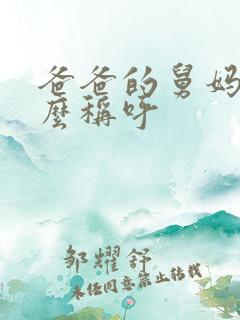 爸爸的舅妈
麼稱呼
邹耀舒
未经同意禁止转载